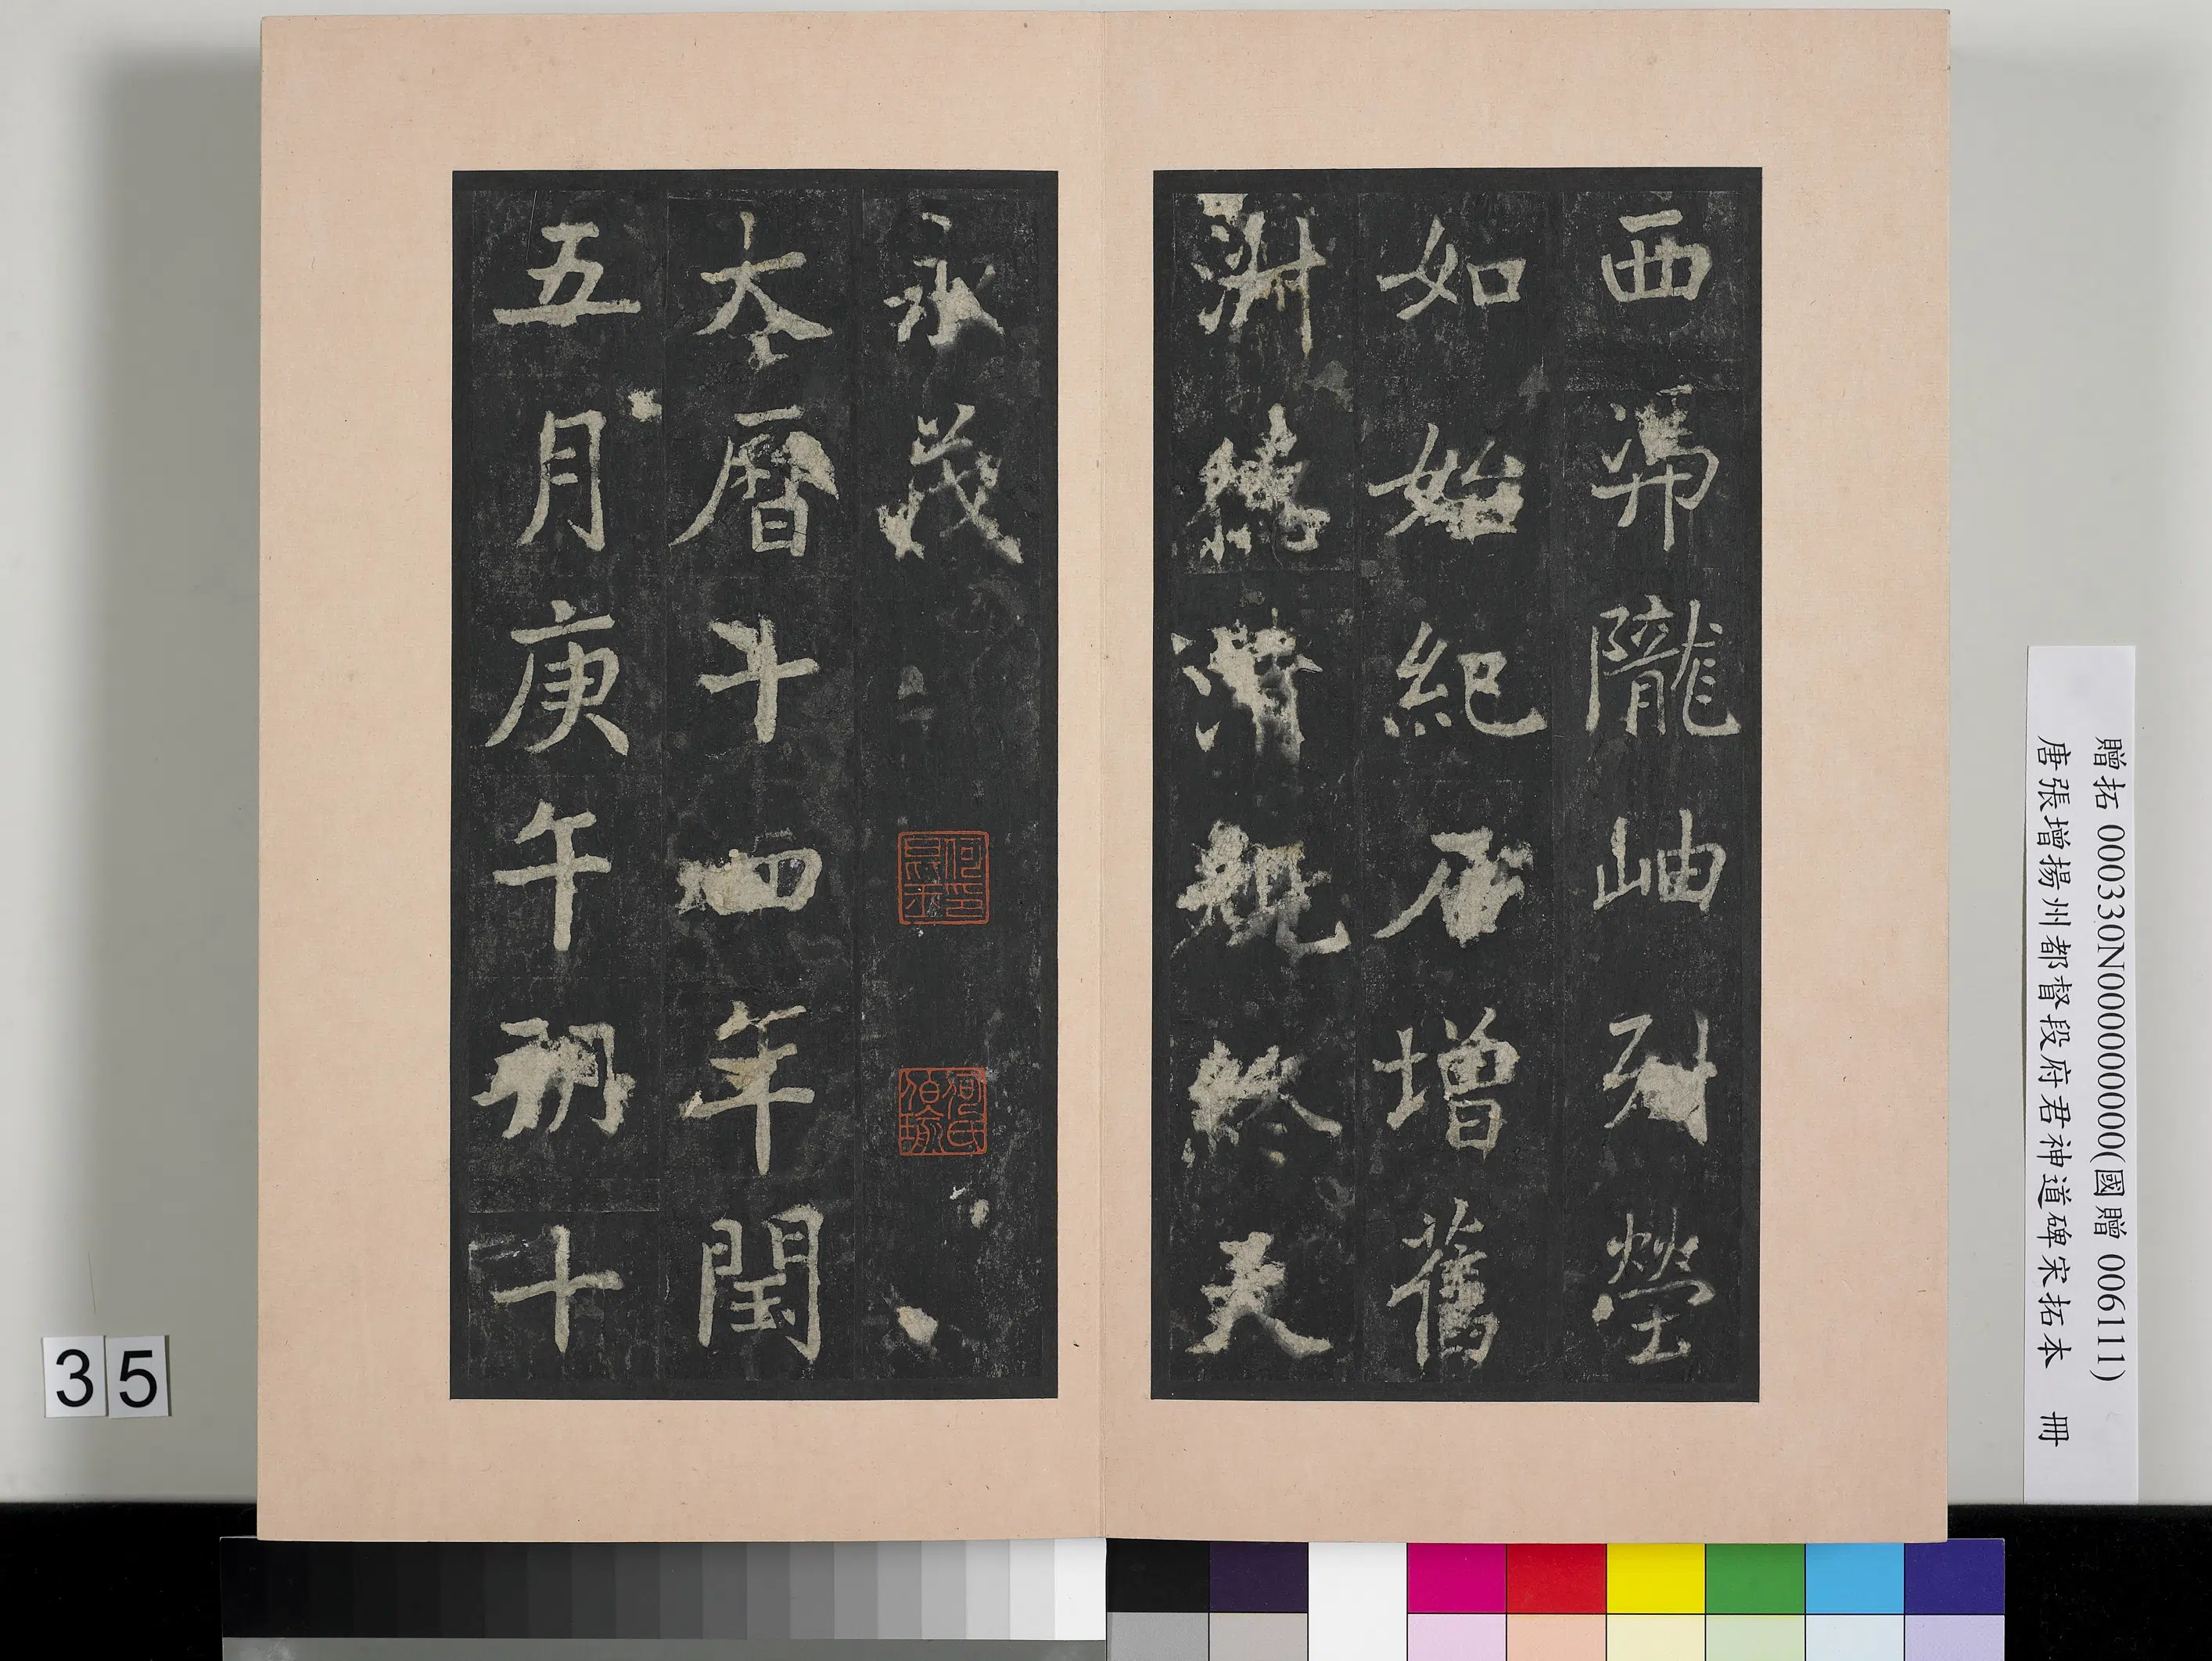 西隴岫列塋
如始紀增舊
終天
永茂
何昆玉印
何氏伯瑜
大曆十四年閏
五月庚午朔十
贈拓 000330N000000000(國贈 006111)
唐張增揚州都督段府君神道碑宋拓本 冊
35